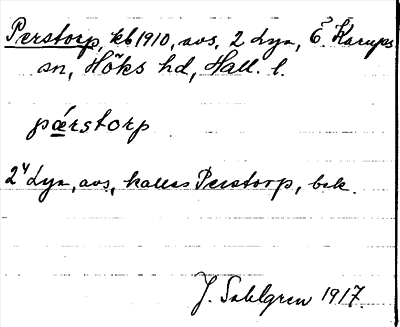 Perstorp, kb 1910, avs, 2 Lya, Ö. Karups
sn, Höks hd, Hall. l.
pæ̀rstorp
2 Lya, avs, kallas Perstorp, bek.
J. Sahlgren 1917.